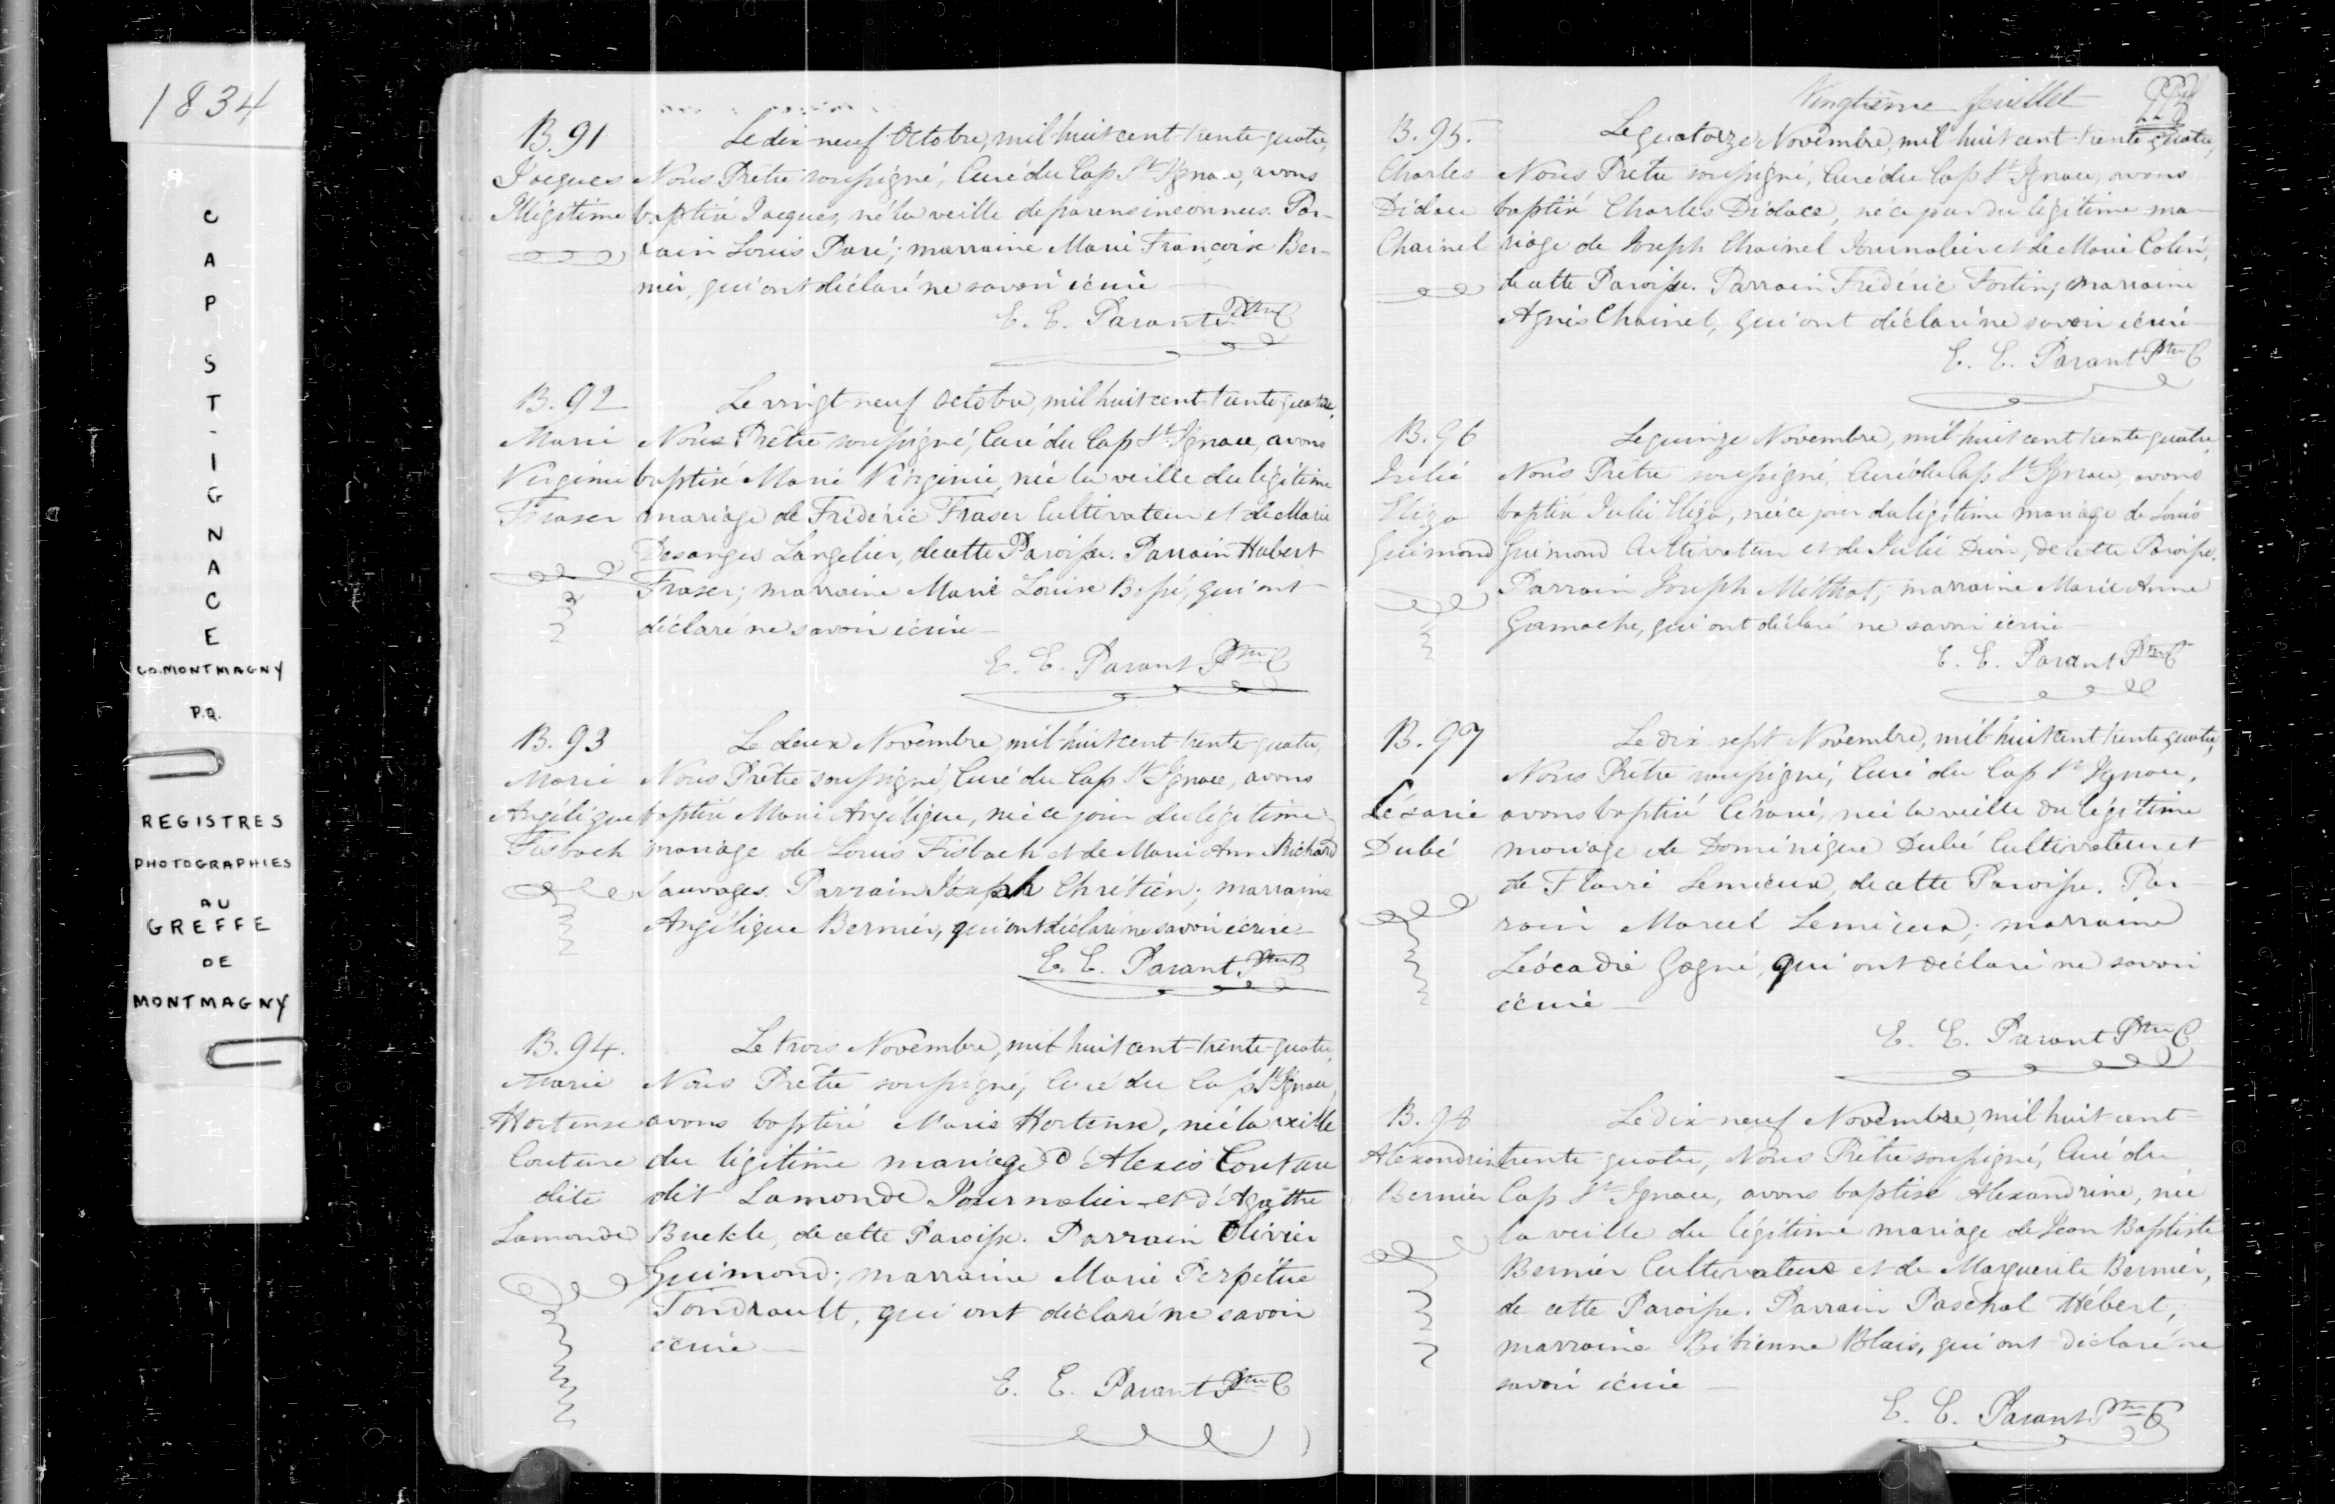 1834
CAP ST-IGNACE
CO. MONTMAGNY
P.Q.
REGISTRES
PHOTOGRAPHIES
AU
GREFFE
DE
MONTMAGNY
B. 91
Jacques
Illégitime
Le dix neuf Octobre, mil huit cent trente quatre,
Nous Prêtre soussigné, Curé du Cap St Ignace, avons
baptisé Jacques, né la veille de parens inconnus. Par-
rain Louis Paré; marraine Marie Françoise Ber-
nier, qui ont déclaré ne savoir écrire
E. E. Parant Ptre C
B. 92
Marie
Virginie
Fraser
Le vingt neuf Octobre, mil huit cent trente quatre,
Nous Prêtre soussigné, Curé du Cap St Ignace, avons
baptisé Marie Virginie, née la veille du légitime
mariage de Fridéric Fraser Cultivateur et de Marie
Desanges Langelier, de cette Paroisse. Parrain Hubert
Fraser; marraine Marie Louise Bossé, qui ont
déclaré ne savoir écrire
E. E. Parant Ptre C
B. 93
Marie
Angélique
Fisbach
Le deux Novembre, mil huit cent trente quatre,
Nous Prêtre soussigné, Curé du Cap St Ignace, avons
baptisé Marie Angélique, née ce jour du légitime
mariage de Louis Fisbach et de Marie Ann Richard
Sauvages. Parrain Joseph Chrétien; marraine
Angélique Bernier, qui ont déclaré ne savoir écrire
E. E. Parant Ptre
B. 94.
Marie
Hortense
Couture
dite
Lamonde
Le trois Novembre, mil huit cent trente quatre,
Nous Prêtre soussigné, Curé du Cap St Ignace,
avons baptisé Marie Hortense, née la veille
du légitime mariage d'Alexis Couture
dit Lamonde Journalier et d'Agathe
Buckle, de cette Paroisse. Parrain Olivier
Guimond; marraine Marie Perpétue
Tondrault, qui ont déclaré ne savoir
écrire
E. E. Parant Ptre C
Vingtième feuillet
B. 95.
Charles
Didace
Chainel
Le quatorze Novembre, mil huit cent trente quatre,
Nous Prêtre soussigné, Curé du Cap St Ignace, avons
baptisé Charles Didace, né ce jour du légitime ma-
riage de Joseph Chainel Journalier et de Marie
de cette Paroisse. Parrain Fréderic Fortin; marraine
Agnès Chainel, qui ont déclaré ne savoir écrire
E. E. Parant Ptre C
B. 96
Julie
Eliza
Guimond
Le quinze Novembre, mil huit cent trente quatre,
Nous Prêtre soussigné, Curé du Cap St Ignace, avons
baptisé Julie Eliza, née ce jour du légitime mariage de Louis
Guimond Cultivateur et de Julie Dion, de cette Paroisse.
Parrain Joseph Méthot; marraine Marie Anne
Gamache, qui ont déclaré ne savoir écrire
E. E. Parant Ptre C
B. 97
Césarie
Dubé
Le dix sept Novembre, mil huit cent trente quatre,
Nous Prêtre soussigné, Curé du Cap St Ignace,
avons baptisé Césarie, née la veille du légitime
mariage de Dominique Dubé Cultivateur et
de Flavie Lemieux, de cette Paroisse. Par-
rain Marcel Lemieux; marraine
Léocadie Gagné, qui ont déclaré ne savoir
écrire
E. E. Parant Ptre C
B. 98
Alexandrine
Bernier
Le dix neuf Novembre, mil huit cent
trente quatre, Nous Prêtre soussigné, Curé du
Cap St Ignace, avons baptisé Alexandrine, née
la veille du légitime mariage de Jean Baptiste
Bernier Cultivateur et de Marguerite Bernier,
de cette Paroisse. Parrain Paschal Hébert,
marraine Bibienne Blais, qui ont déclaré ne
savoir écrire
E. E. Parant Ptre C